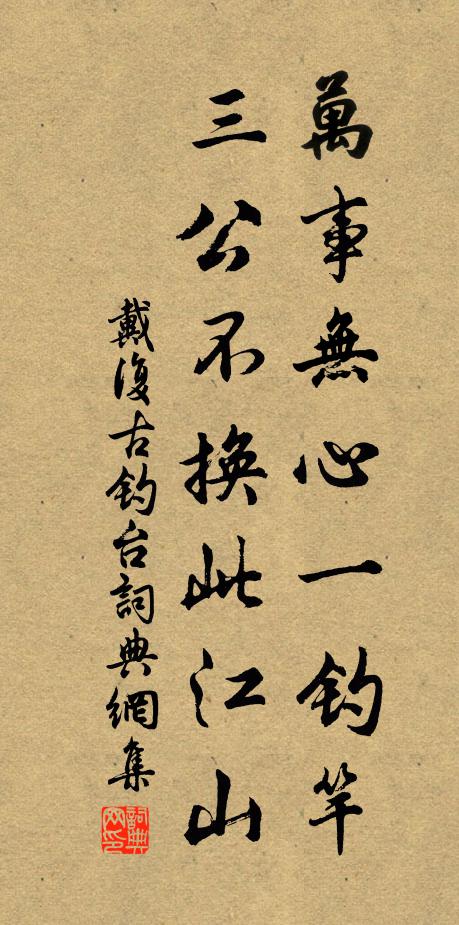 萬事無心一釣竿
三公不換此江山
戴復古釣台詞典網集
詞典網印